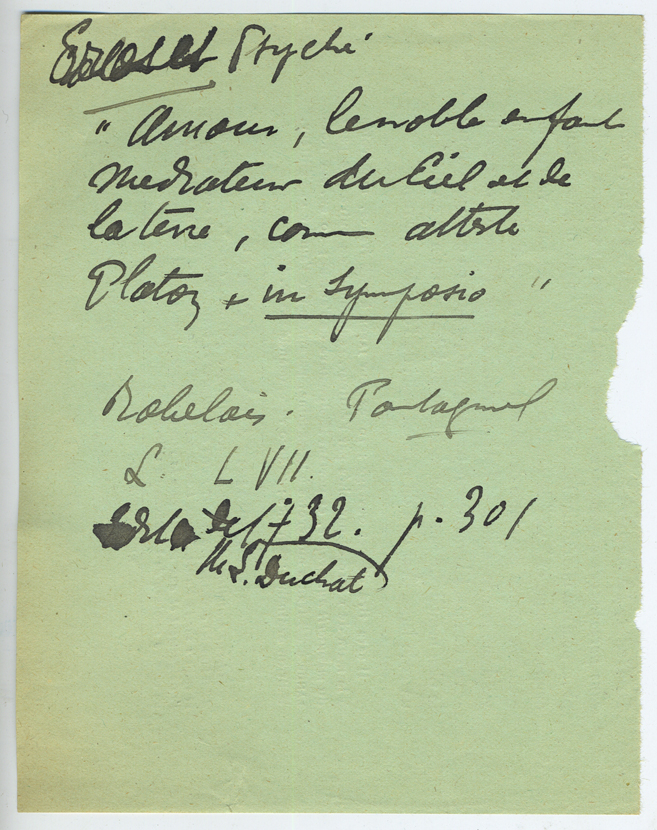 Eros et Psyché
" Amour, le noble enfant
médiateur du Ciel et de
la terre, comme atteste
Platon, in Symposio "
Rabelais. Pantagruel
L. LVII.
de 1732. p. 301
M L. Duchat